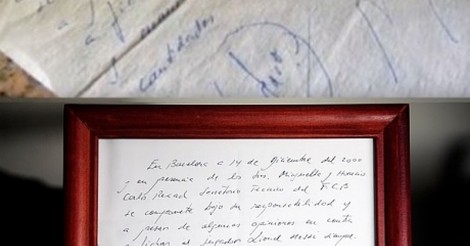 a
cantidades
En Barcelona a 14 de Diciembre del 2000
y en presencia de los Srs. Minguella y Horacio
Carlos Rexach Secretario Técnico del F.C.B
se compromete bajo su responsabilidad y
a pesar de algunas opiniones en contra
fichar al jugador Lionel Messi